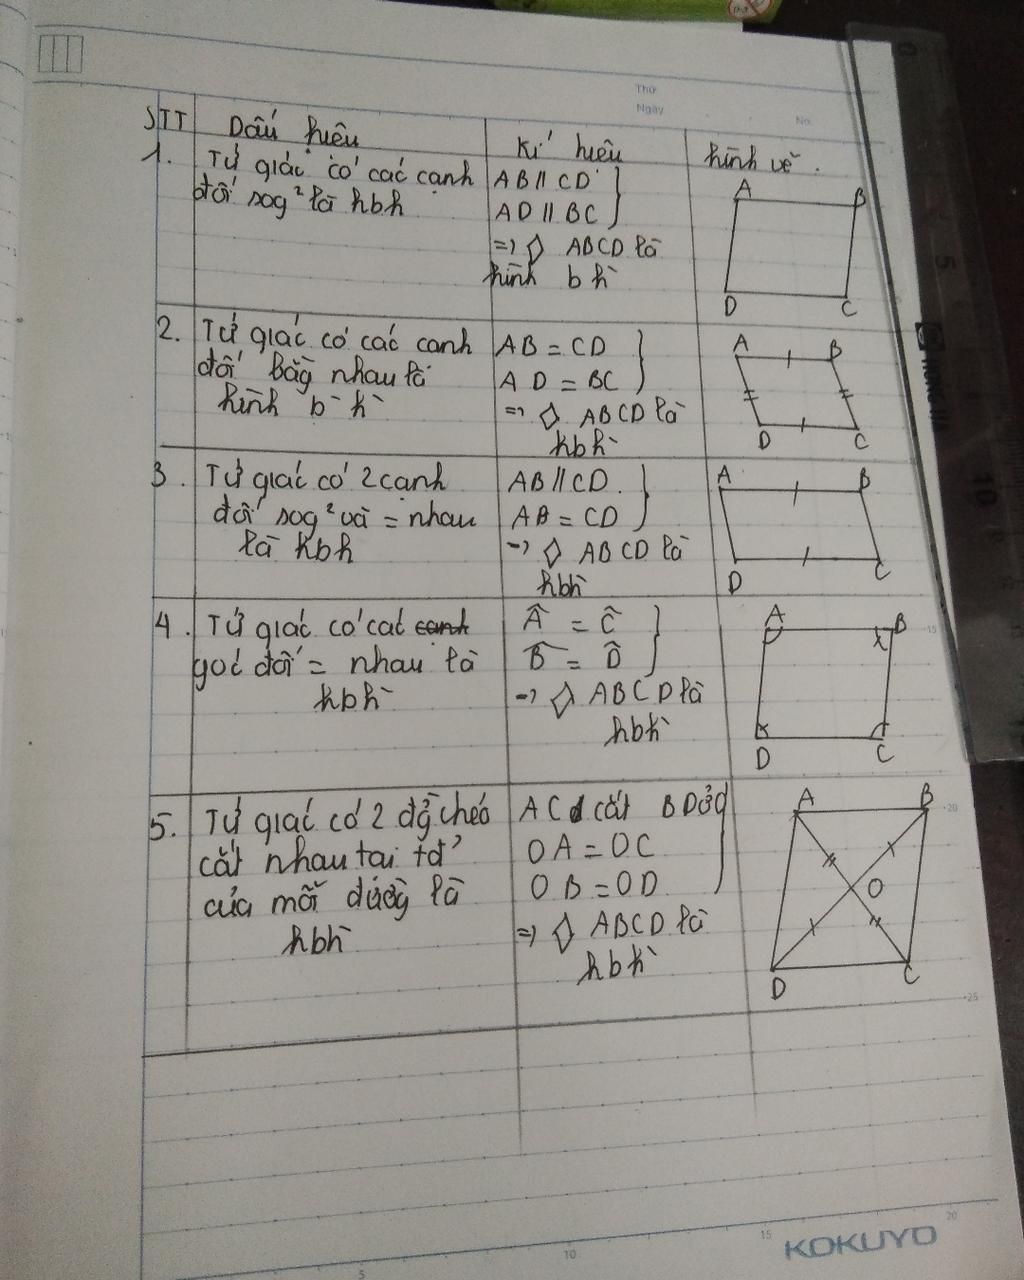 Thứ
Ngày
No.
STT Dấu hiệu Kí hiệu hình vẽ.
1. Tứ giác có các cạnh
đối sog² là hbh
AB // CD
AD // BC
=> ◇ ABCD là
hình b h
A B
D C
2. Tứ giác có các cạnh
đối bằg nhau là
hình b h
AB = CD
AD = BC
=> ◇ ABCD là
hbh
A B
D C
3. Tứ giác có 2 cạnh
đối sog² và = nhau
là hbh
AB // CD.
AB = CD
=> ◇ ABCD là
hbh
A B
D C
4. Tứ giác có các cạnh
góc đối = nhau là
hbh
Â = Ĉ
B̂ = D̂
=> ◇ ABCD là
hbh
A B
D C
5. Tứ giác có 2 đg chéo
cắt nhau tại tđ
của mỗi đườg là
hbh
AC cắt BD ở O
OA = OC
OB = OD
=> ◇ ABCD là
hbh
A B
O
D C
0
5
10
15
20
25
5 10 15 20
KOKUYO